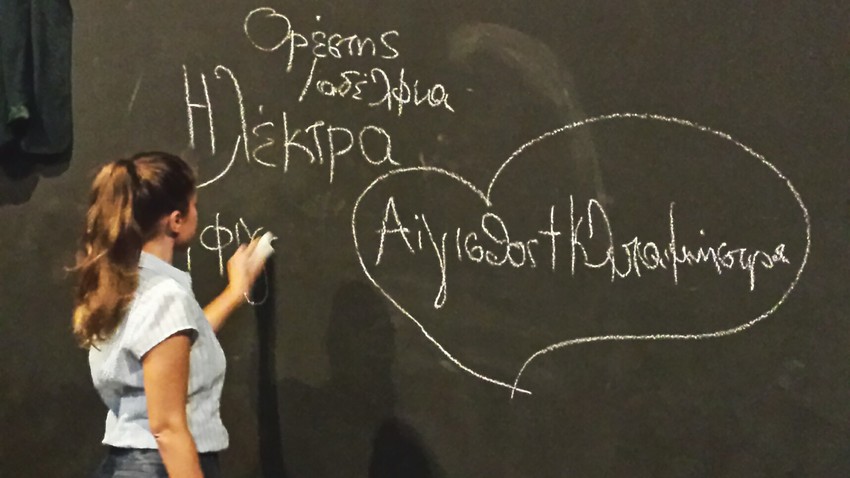 Ορέστης
/αδέλφια
Ηλέκτρα
Αίγισθος + Κλυταιμνήστρα